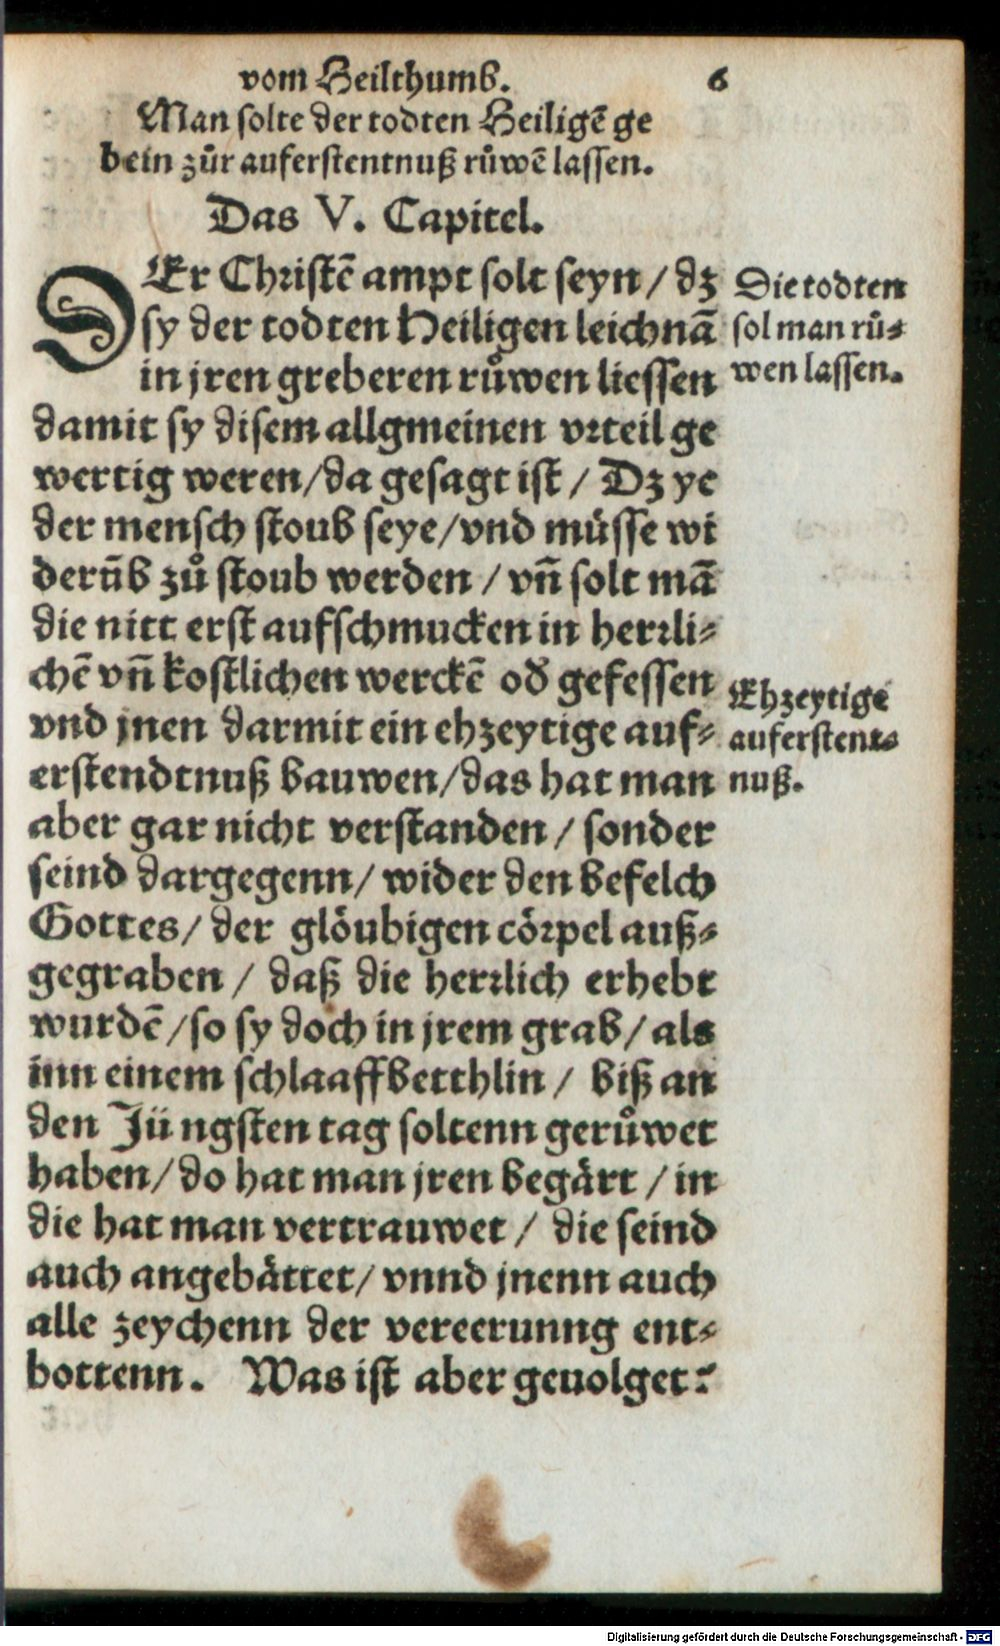 vom Heilthumb. 6
Man solte der todten Heiligē ge
bein zůr auferstentnuß růwē lassen.
Das V. Capitel.
DEr Christē ampt solt seyn / dz
sy der todten Heiligen leichnā
in jren greberen růwen liessen
Die todten
sol man rů⸗
wen lassen.
damit sy disem allgmeinen vrteil ge
wertig weren / da gesagt ist / Dz ye
der mensch stoub seye / vnd müsse wi
derūb zů stoub werden / vñ solt mā
die nitt erst aufschmucken in herrli⸗
chē vñ kostlichen werckē od̄ gefessen
vnd jnen darmit ein ehzeytige auf⸗
erstendtnuß bauwen / das hat man
Ehzeytige
auferstent⸗
nuß.
aber gar nicht verstanden / sonder
seind dargegenn / wider den befelch
Gottes / der glöubigen cörpel auß⸗
gegraben / daß die herrlich erhebt
wurdē / so sy doch in jrem grab / als
inn einem schlaaffbetthlin / biß an
den Jüngsten tag soltenn gerůwet
haben / do hat man jren begärt / in
die hat man vertrauwet / die seind
auch angebättet / vnnd jnenn auch
alle zeychenn der vereerunng ent⸗
bottenn. Was ist aber geuolget?
Digitalisierung gefördert durch die Deutsche Forschungsgemeinschaft - DFG